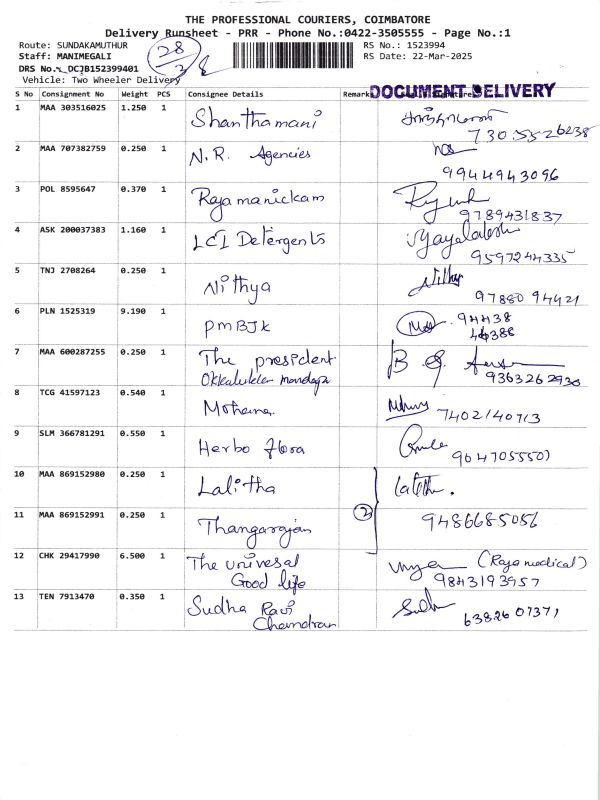 THE PROFESSIONAL COURIERS, COIMBATORE
Delivery Runsheet - PRR - Phone No.:0422-3505555 - Page No.:1
Route: SUNDAKAMUTHUR 28/3 RS No.: 1523994
Staff: MANIMEGALI RS Date: 22-Mar-2025
DRS No.: DCJB152399401
Vehicle: Two Wheeler Delivery DOCUMENT DELIVERY
S No Consignment No Weight PCS Consignee Details Remarks
1 MAA 303516025 1.250 1 Shanthamani
2 MAA 707382759 0.250 1 N.R. Agencies
9944943096
3 POL 8595647 0.370 1 Rajamanickam
9789431837
4 ASK 200037383 1.160 1 LCI Detergents
9597244335
5 TNJ 2708264 0.250 1 Nithya Nithya
97880 94421
6 PLN 1525319 9.190 1 PMBJK 94438
46388
7 MAA 600287255 0.250 1 The president
9363262930
8 TCG 41597123 0.540 1 Mohana
7402140713
9 SLM 366781291 0.550 1 Herbo flora
9047055507
10 MAA 869152980 0.250 1 Lalitha
2
11 MAA 869152991 0.250 1 Thangarajan 9486685056
12 CHK 29417990 6.500 1 The univesal (Raja medical)
Good life 9843193957
13 TEN 7913470 0.350 1 Sudha Ravi Sudha
Chandran 6382607371